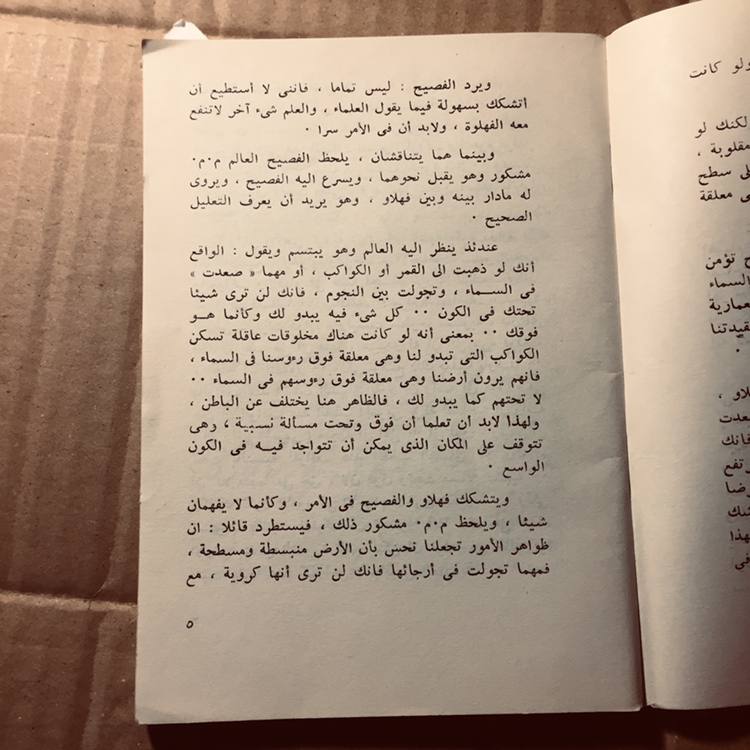 ويرد الفصيح : ليس تماما ، فاننى لا أستطيع أن
أتشكك بسهولة فيما يقول العلماء ، والعلم شىء آخر لاتنفع
معه الفهلوة ، ولابد أن فى الأمر سرا ٠
وبينما هما يتناقشان ، يلحظ الفصيح العالم م٠م٠
مشكور وهو يقبل نحوهما ، ويسرع اليه الفصيح ، ويروى
له مادار بينه وبين فهلاو ، وهو يريد أن يعرف التعليل
الصحيح ٠
عندئذ ينظر اليه العالم وهو يبتسم ويقول : الواقع
أنك لو ذهبت الى القمر أو الكواكب ، أو مهما « صعدت »
فى الســماء ، وتجولت بين النجوم ، فانك لن ترى شيئا
تحتك فى الكون ٠٠ كل شىء فيه يبدو لك وكأنما هــو
فوقك ٠٠ بمعنى أنه لو كانت هناك مخلوقات عاقلة تسكن
الكواكب التى تبدو لنا وهى معلقة فوق رءوسنا فى السماء ،
فانهم يرون أرضنا وهى معلقة فوق رءوسهم فى السماء ٠٠
لا تحتهم كما يبدو لك ، فالظاهر هنا يختلف عن الباطن ،
ولهذا لابد أن تعلما أن فوق وتحت مسألة نسبية ، وهى
تتوقف على المكان الذى يمكن أن تتواجد فيــه فى الكون
الواسع ٠
ويتشكك فهلاو والفصيح فى الأمر ، وكأنما لا يفهمان
شيئا ، ويلحظ م٠م٠ مشكور ذلك ، فيستطرد قائلا : ان
ظواهر الأمور تجعلنا نحس بأن الأرض منبسطة ومسطحة ،
فمهما تجولت فى أرجائها فانك لن ترى أنها كروية ، مع
٥
ولو كانت
لكنك لو
مقلوبة ،
سطح
معلقة
تؤمن
السماء
فانك